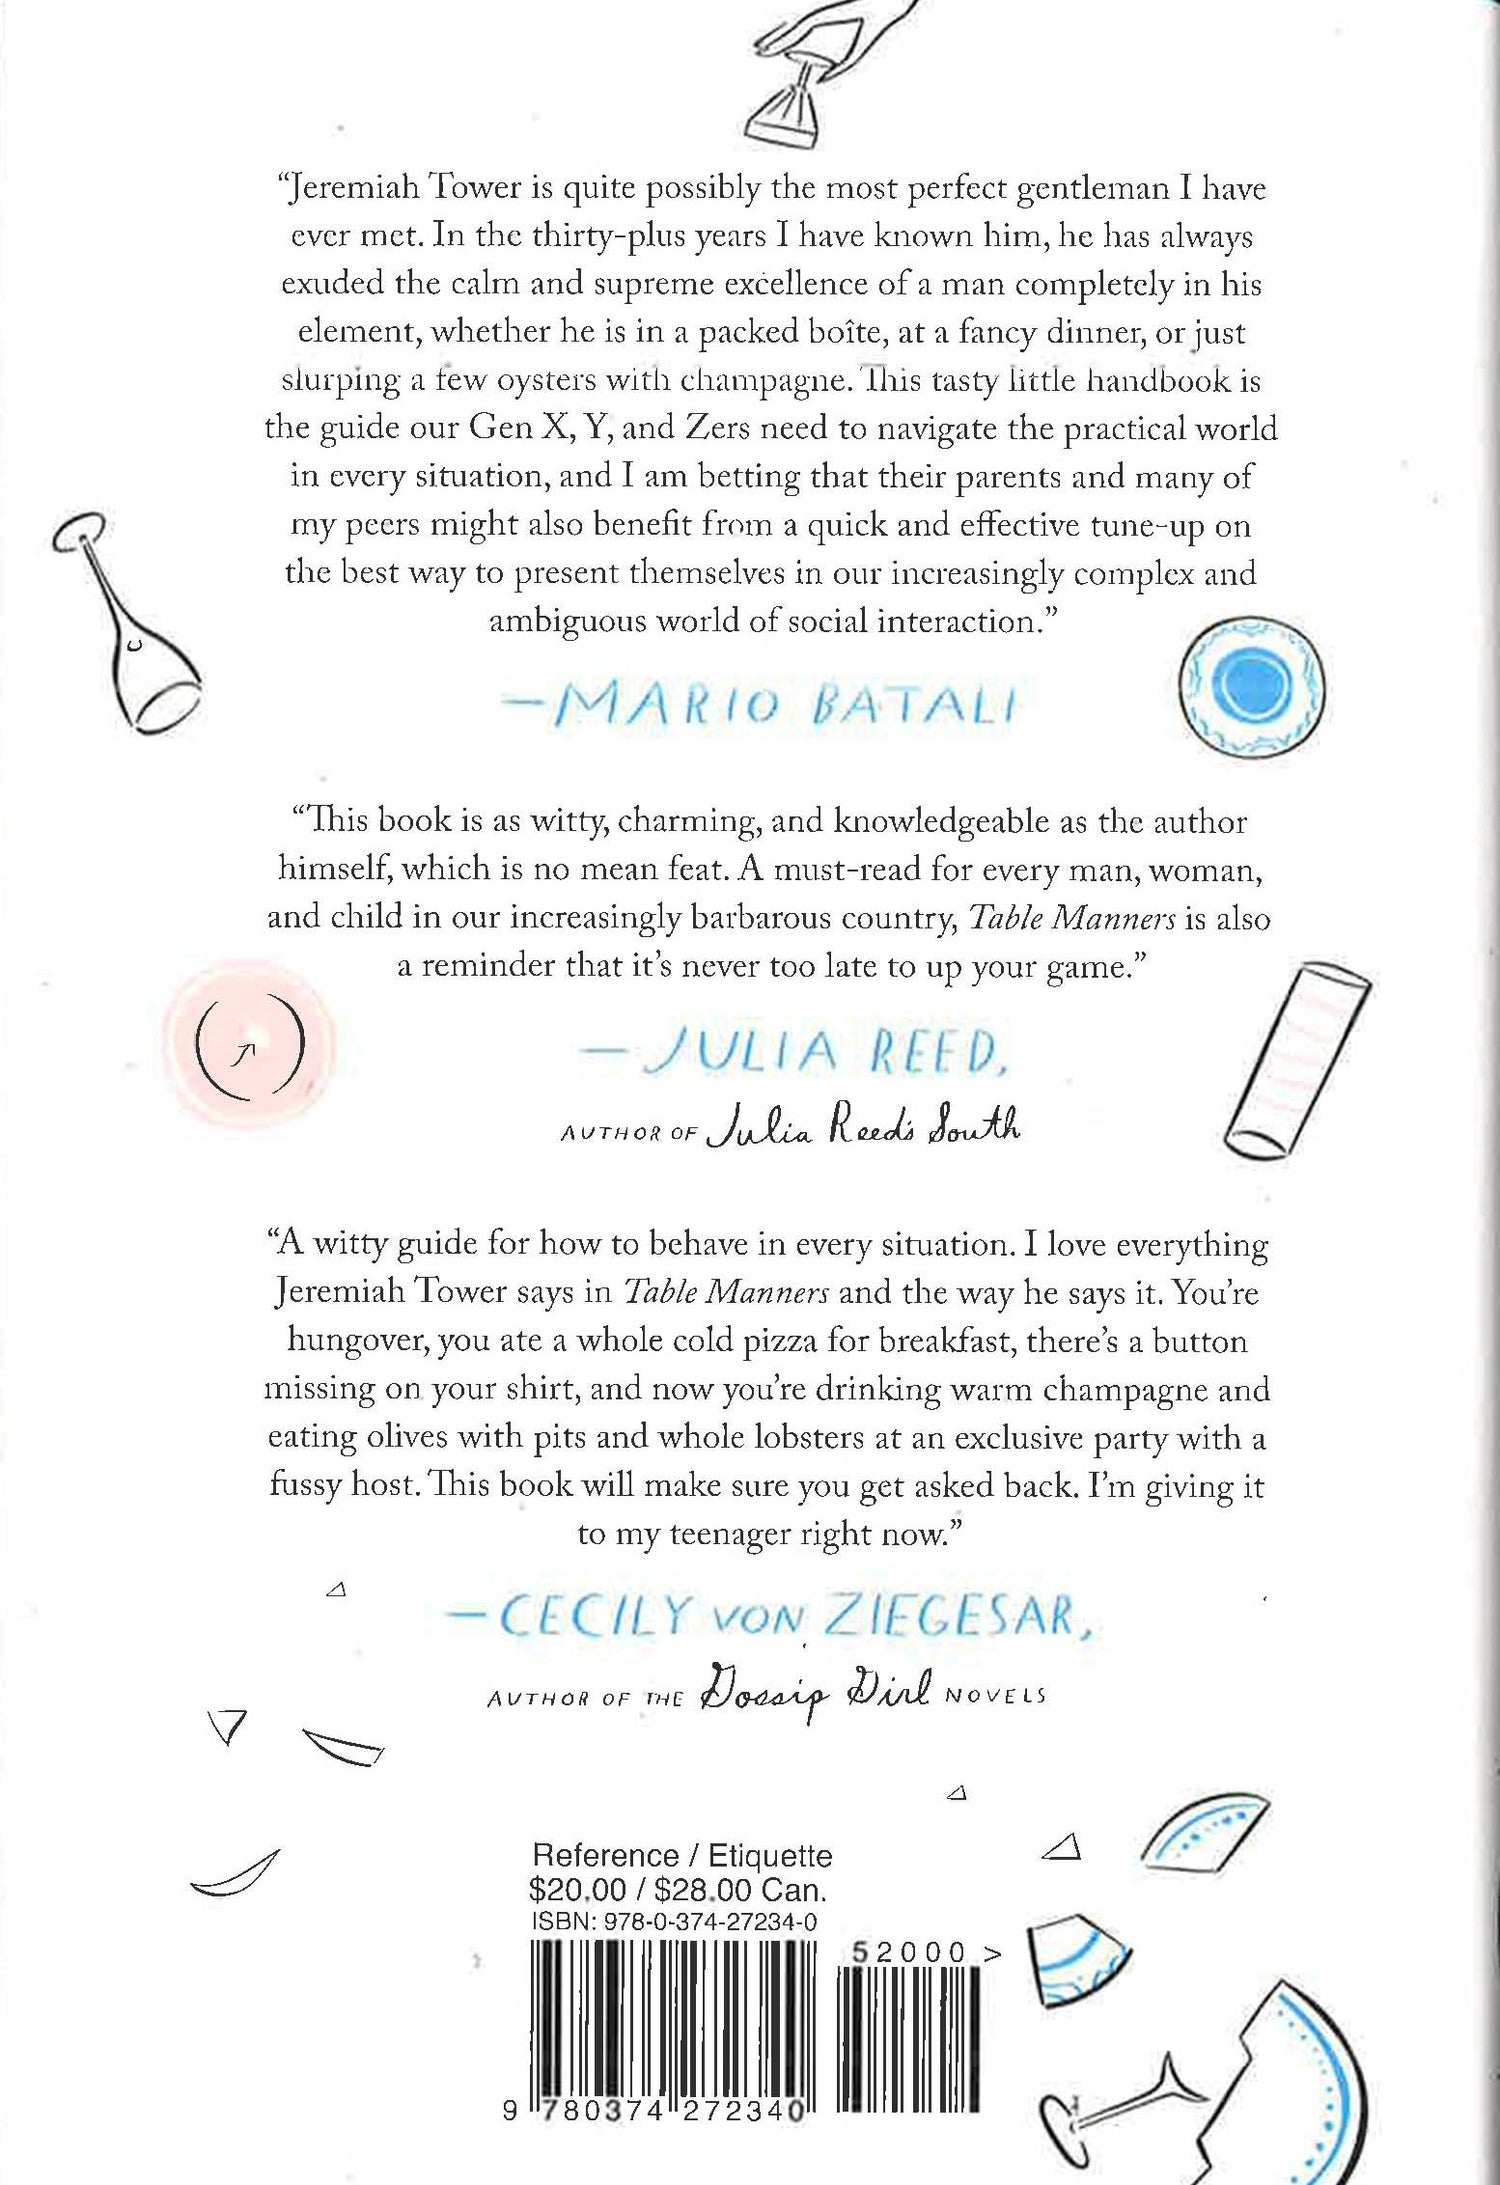 “Jeremiah Tower is quite possibly the most perfect gentleman I have
ever met. In the thirty-plus years I have known him, he has always
exuded the calm and supreme excellence of a man completely in his
element, whether he is in a packed boîte, at a fancy dinner, or just
slurping a few oysters with champagne. This tasty little handbook is
the guide our Gen X, Y, and Zers need to navigate the practical world
in every situation, and I am betting that their parents and many of
my peers might also benefit from a quick and effective tune-up on
the best way to present themselves in our increasingly complex and
ambiguous world of social interaction.”
—MARIO BATALI
“This book is as witty, charming, and knowledgeable as the author
himself, which is no mean feat. A must-read for every man, woman,
and child in our increasingly barbarous country, Table Manners is also
a reminder that it’s never too late to up your game.”
—JULIA REED,
AUTHOR OF Julia Reed's South
“A witty guide for how to behave in every situation. I love everything
Jeremiah Tower says in Table Manners and the way he says it. You’re
hungover, you ate a whole cold pizza for breakfast, there’s a button
missing on your shirt, and now you’re drinking warm champagne and
eating olives with pits and whole lobsters at an exclusive party with a
fussy host. This book will make sure you get asked back. I’m giving it
to my teenager right now.”
—CECILY VON ZIEGESAR,
AUTHOR OF THE Gossip Girl NOVELS
Reference / Etiquette
$20.00 / $28.00 Can.
ISBN: 978-0-374-27234-0
52000 >
9 780374 272340